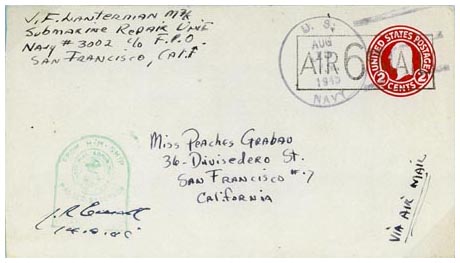 V.F. Lanterman M2/c
Submarine Repair Unit
Navy # 3002 c/o F.P.O.
San Francisco, Calif
U. S.
AUG
NAVY
AIR 6 A
UNITED STATES POSTAGE
2 CENTS 2
Miss Peaches Grabau
36 - Divisedero St.
San Francisco # 7
California
Via Air Mail